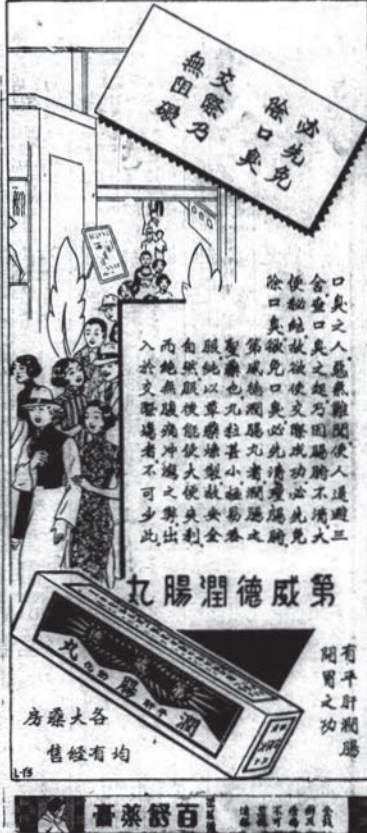 必先免
除口臭
交際乃
無阻礙
口臭之人惡氣難聞使人退避三
舍查口臭之起乃因腸腑不清大
便秘結故欲使交際成功必先免
除口臭欲免口臭必先清理腸腑
第威德潤腸丸者潤腸之
聖藥也丸粒甚小極易吞
服純以草藥煉製故安全
自然服後能使大便爽利
而絕無腹痛沖瀉之弊出
入於交際場者不可少此
第威德潤腸丸
有平肝潤腸
開胃之功
潤腸丸
平肝
各大藥房
均有經售
L-13
百舒藥膏